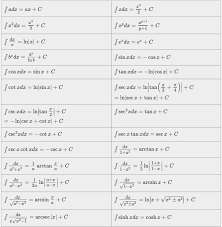 ∫ adx = ax + C
∫ xdx = x²/2 + C
∫ a²dx = a³/3 + C
∫ aⁿdx = aⁿ⁺¹/n+1 + C
∫ dx/x = ln|x| + C
∫ eˣdx = eˣ + C
∫ bˣdx = bˣ/ln b + C
∫ sin xdx = − cos x + C
∫ cos xdx = sin x + C
∫ tan xdx = − ln|cos x| + C
∫ cot xdx = ln|sin x| + C
∫ sec xdx = ln|tan(x/2 + π/4)| + C
= ln|sec x + tan x| + C
∫ csc xdx = ln|tan x/2| + C
= − ln|csc x + cot x| + C
∫ sec² xdx = tan x + C
∫ csc² xdx = − cot x + C
∫ sec x tan xdx = sec x + C
∫ csc x cot xdx = − csc x + C
∫ dx/1+x² = arctan x + C
∫ dx/a²+x² = 1/a arctan x/a + C
∫ dx/1−x² = 1/2 ln|1+x/1−x| + C
∫ dx/a²−x² = 1/2a ln|a+x/a−x| + C
∫ dx/√1−x² = arcsin x + C
∫ dx/√a²−x² = arcsin x/a + C
∫ dx/√x²±a² = ln|x + √x² ± a²| + C
∫ dx/x√x²−1 = arcsec |x| + C
∫ sinh xdx = cosh x + C